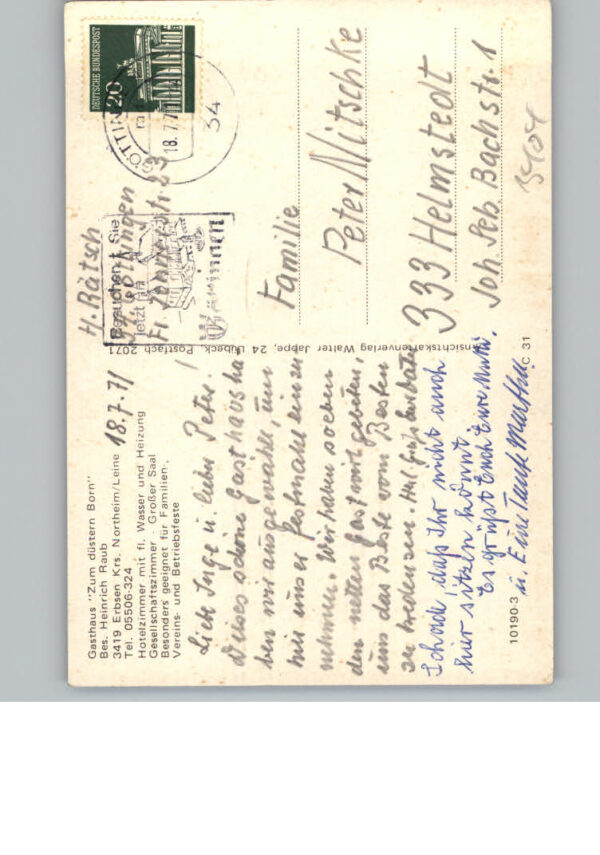 Gasthaus "Zum düstern Born"
Bes. Heinrich Raub
3419 Erbsen Krs. Northeim/Leine
Tel. 05506-324
Hotelzimmer mit fl. Wasser und Heizung
Gesellschaftszimmer . Großer Saal
Besonders geeignet für Familien-,
Vereins- und Betriebsfeste
18.7.71
Liebe Inge u. lieber Peter!
Dieses schöne Gasthaus ha-
ben wir ausgewählt, um
hier unser Festmahl einzu
nehmen. Wir haben soeben
den netten Gastwirt gebeten,
uns das Beste vom Besten
zu
Schade, daß Ihr nicht auch
hier sitzen könnt.
Es grüßt Euch Eure Mutti.
u. Eure Tante Martha
10190-3
C 31
Ansichtskartenverlag Walter Jappe, 24 Lübeck, Postfach 2071
H. Rätsch
34 Göttingen
DEUTSCHE BUNDESPOST
20
GÖTTINGEN
18.7.71
34
Besuchen Sie
jetzt in
Familie
Peter Nitschke
333 Helmstedt
Joh. Seb Bachstr. 1